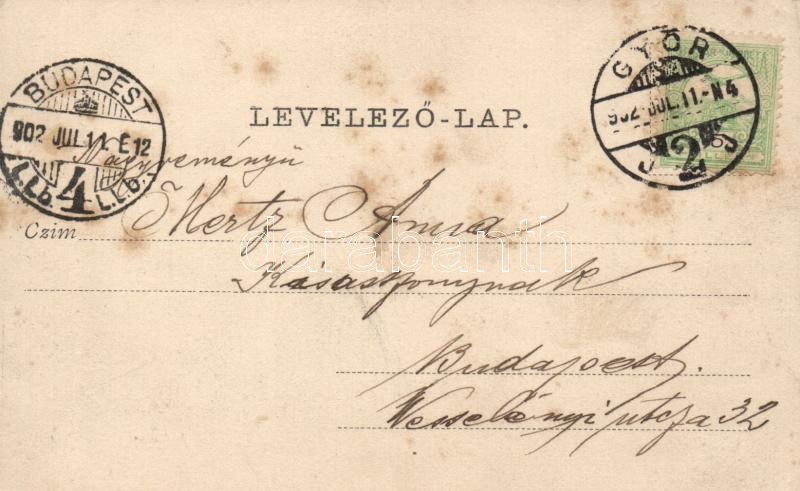 BUDAPEST
902 JUL 11. E 12
4
L.Lb. L.L.b.
GYŐR
902 JUL 11.-N4
2
LEVELEZŐ-LAP.
Nagyreményü
Czim Mertz Anna
Kisasszonynak
Budapest.
Wesselényi utcza 32
darabanth